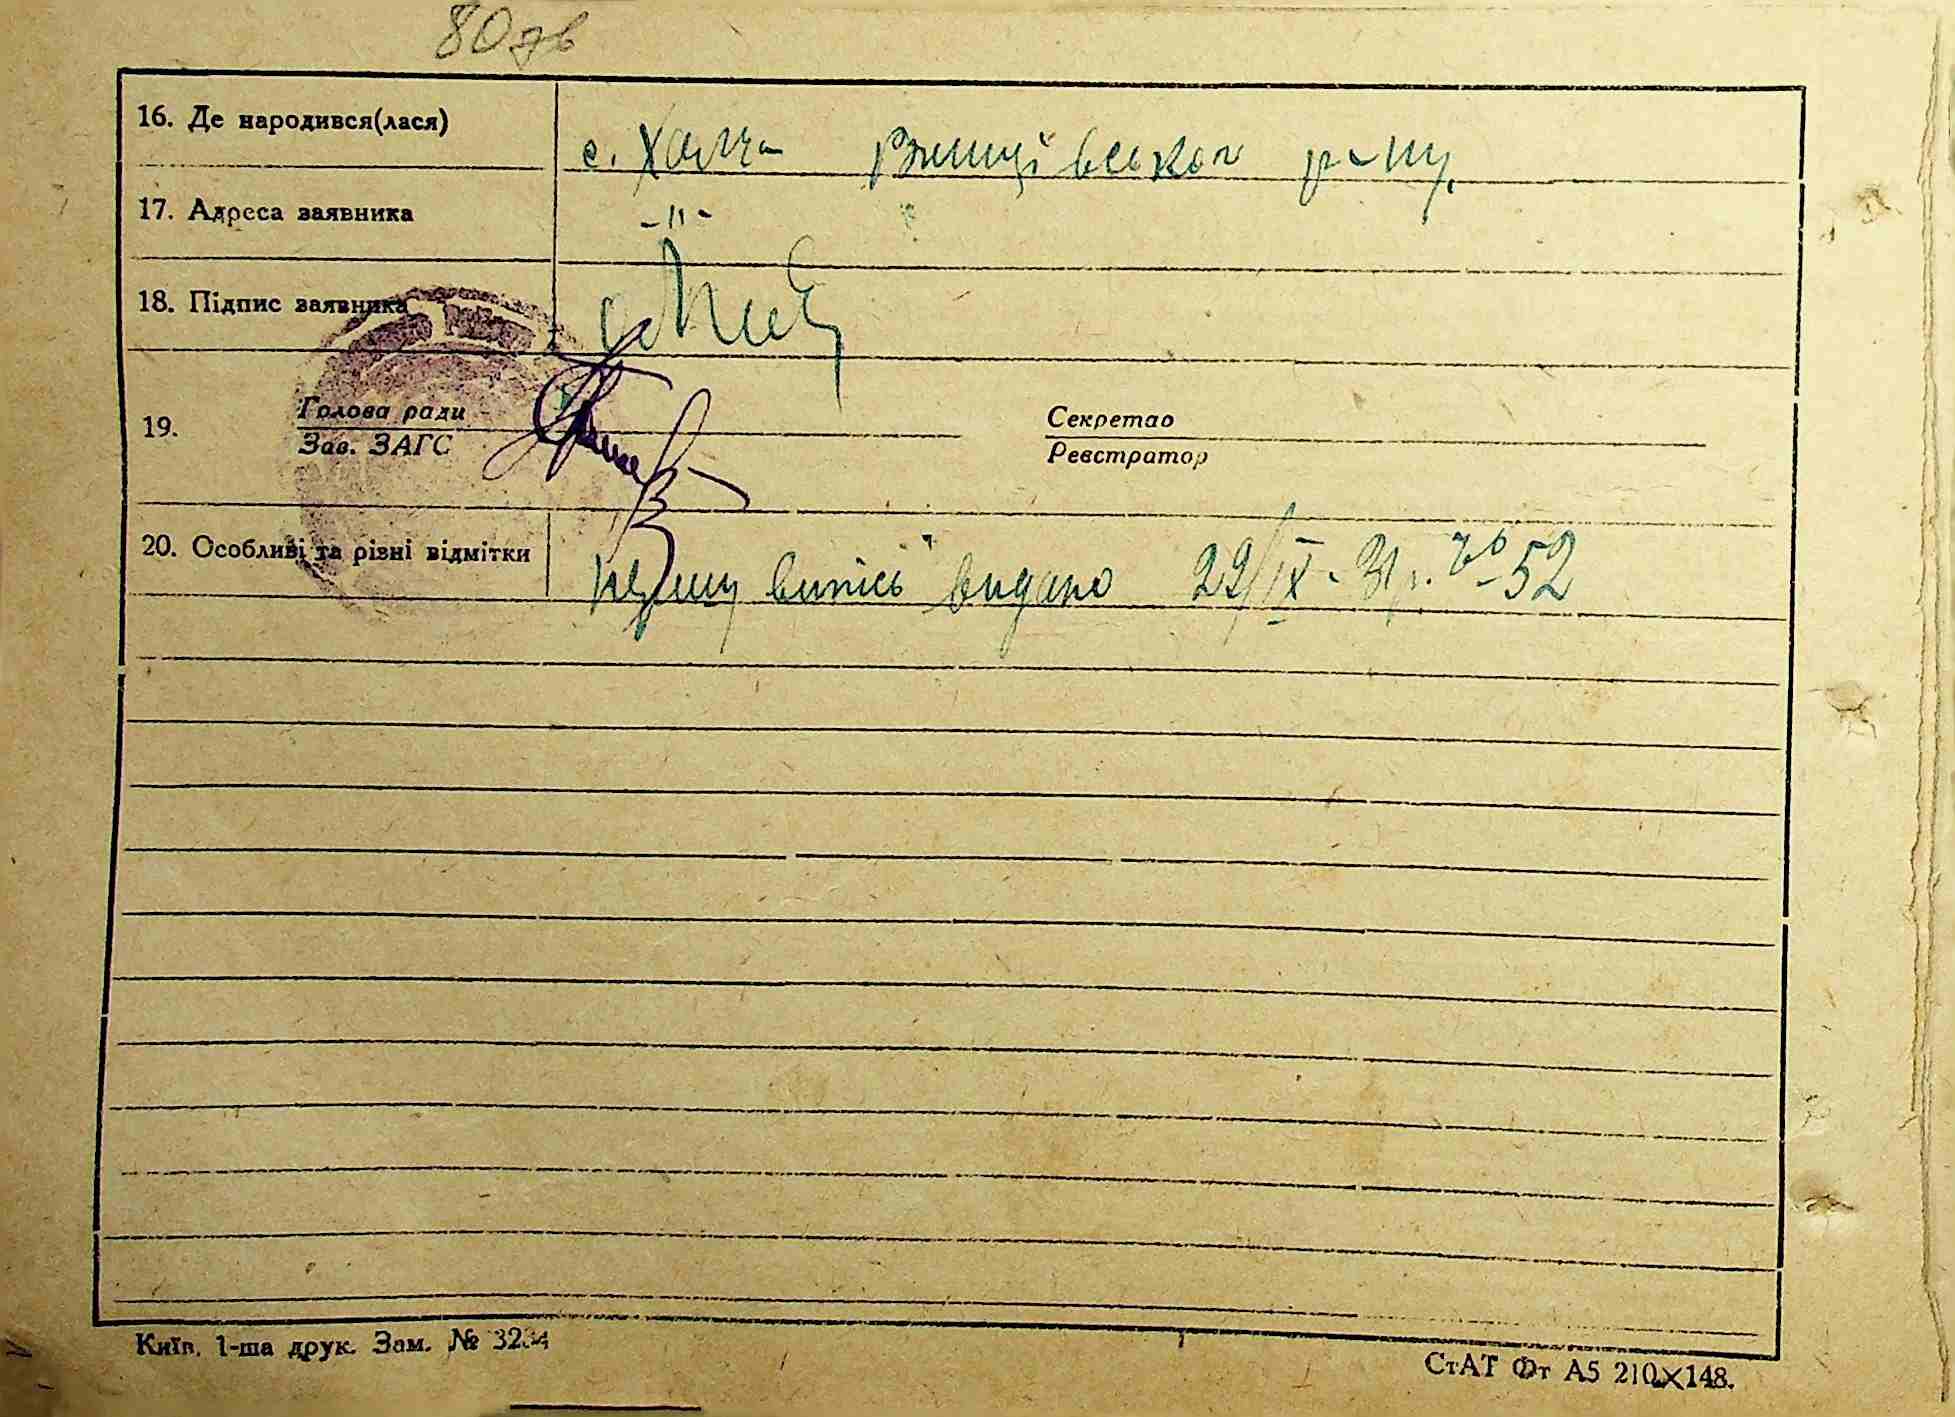 80 зв
16. Де народився(лася) с. Халча Ржищівськог р-ну.
17. Адреса заявника -"-
18. Підпис заявника
19. Голова ради Секретар
Зав. ЗАГС Реєстратор
20. Особливі та різні відмітки першу випись видано 22/IX - 31 р. № -52
Київ. 1-ша друк. Зам. № 3234
СтАТ Фт А5 210×148.